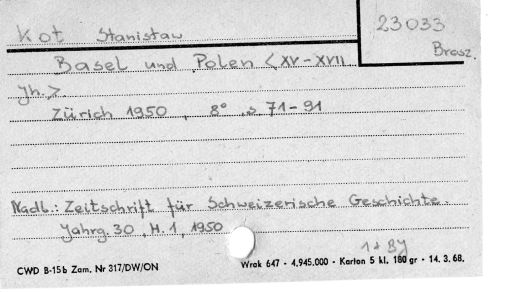 Kot Stanisław
23033
Brosz.
Basel und Polen <XV-XVII
Jh.>
Zürich 1950, 8° s 71-91
Nadb.: Zeitschrift für Schweizerische Geschichte.
Jahrg. 30, H. 1, 1950
CWD B-15b Zam. Nr 317/DW/ON
Wrak 647 - 4,945.000 - Karton 5 kl. 180 gr - 14. 3. 68.